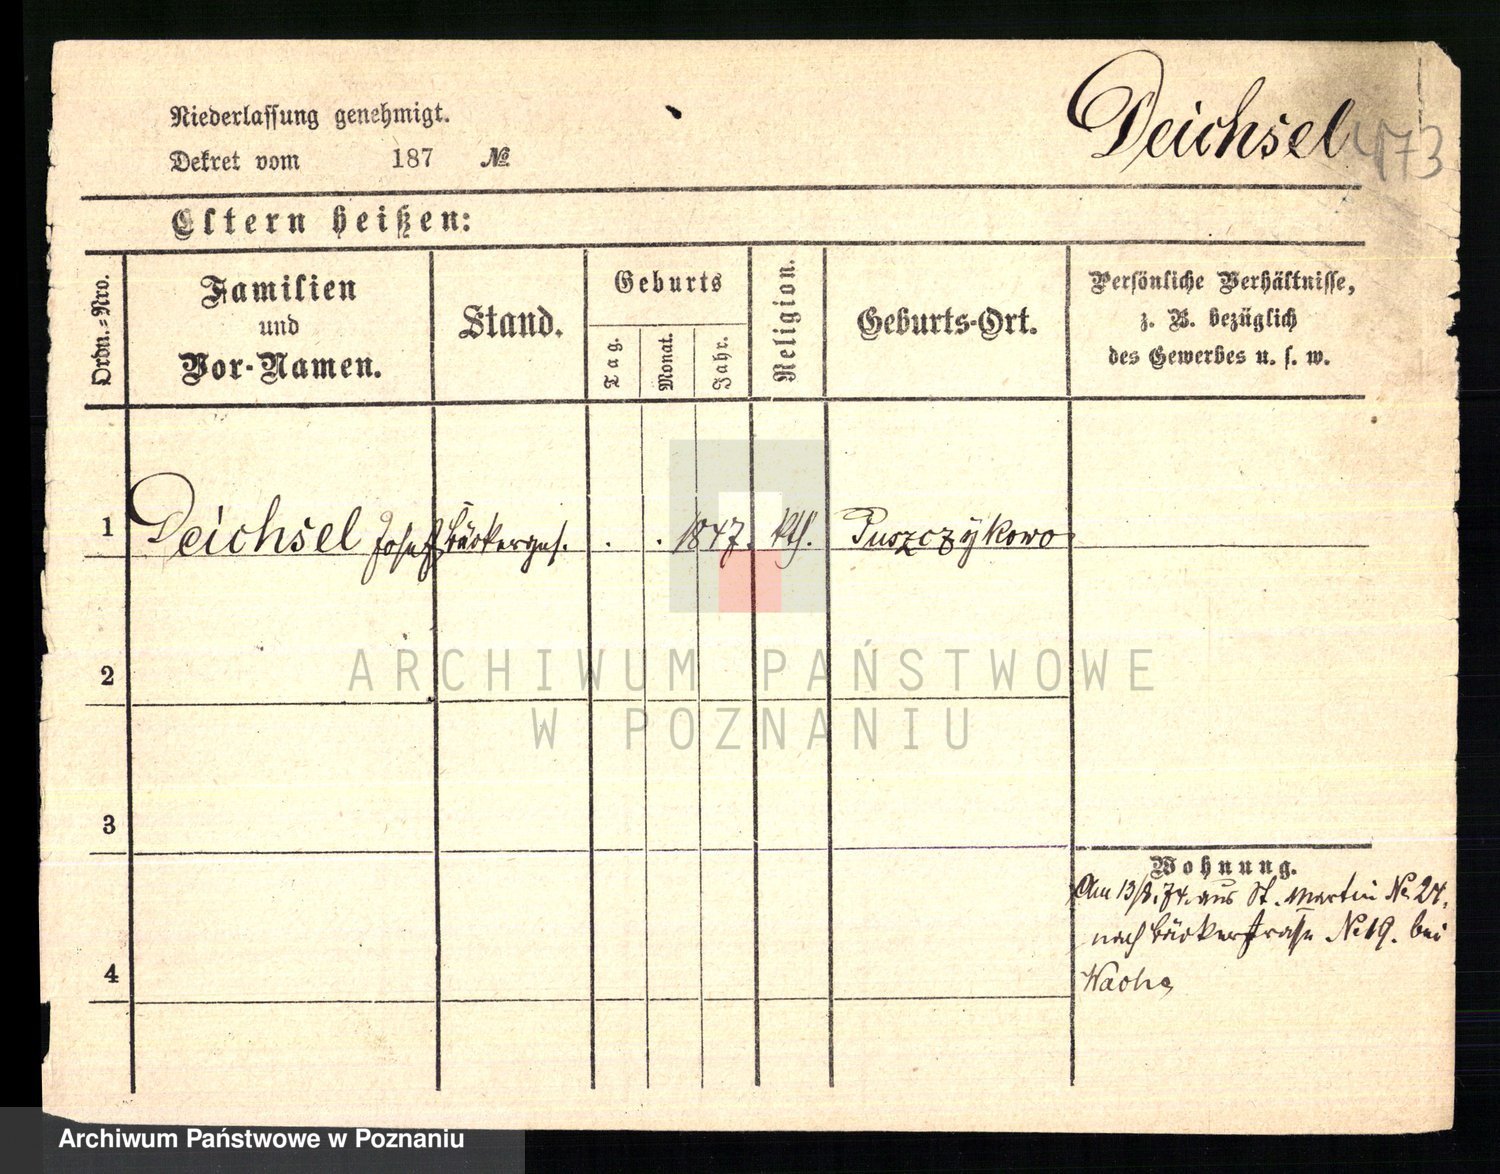 Niederlassung genehmigt.
Deichsel 473
Dekret vom 187 №
Eltern heißen:
Ordn.=Nro.
Familien
und
Vor-Namen.
Stand.
Geburts
Tag.
Monat.
Jahr.
Religion.
Geburts-Ort.
Persönliche Verhältnisse,
z. B. bezüglich
des Gewerbes u. s. w.
1 Deichsel Josef Bäckerges. . . 1847. kth. Puszczykowo
2
3
4
Wohnung.
Am 13/8. 74. aus St. Martin № 24.
nach Bäckerstrasse № 19. bei
Wache
ARCHIWUM PAŃSTWOWE
W POZNANIU
Archiwum Państwowe w Poznaniu